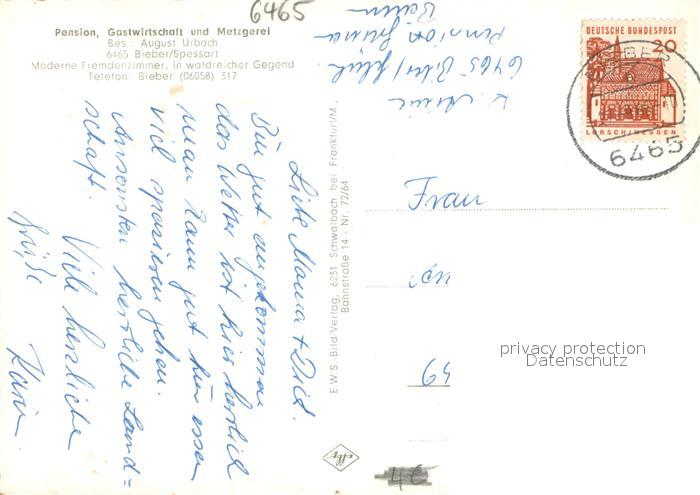 6465
Pension, Gastwirtschaft und Metzgerei
Bes.: August Urbach
6465 Bieber/Spessart
Moderne Fremdenzimmer, in waldreicher Gegend
Telefon: Bieber (06058) 317
6465
Pension
DEUTSCHE BUNDESPOST
20
LORSCH/HESSEN
6465
Liebe Mama + Dieb.
Bin gut angekommen
das Wetter ist hier herrlich
man kann gut hier essen
viel spazieren gehen.
Ansonsten herrliche Land=
schaft.
Viele herzliche
Grüße
Karin
E W S -Bild-Verlag, 6231 Schwalbach bei Frankfurt/M.
Bahnstraße 14 - Nr. 72/64
Frau
59
privacy protection
Datenschutz